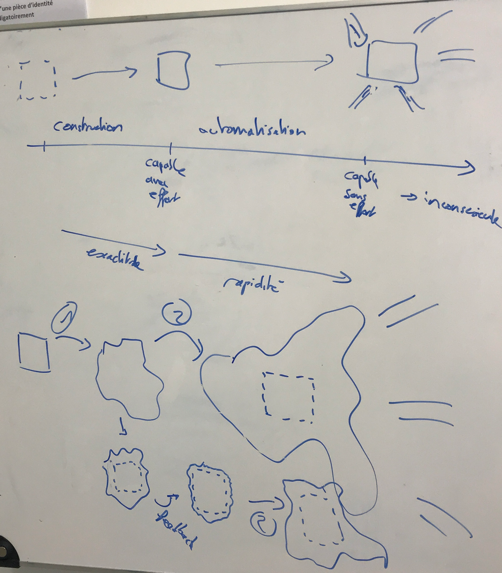 'une pièce d'identité
ligatoirement
construction
automatisation
capable
avec
effort
capable
sans
effort
→ inconscicule
exactitude
rapidité
1
2
feedback
2